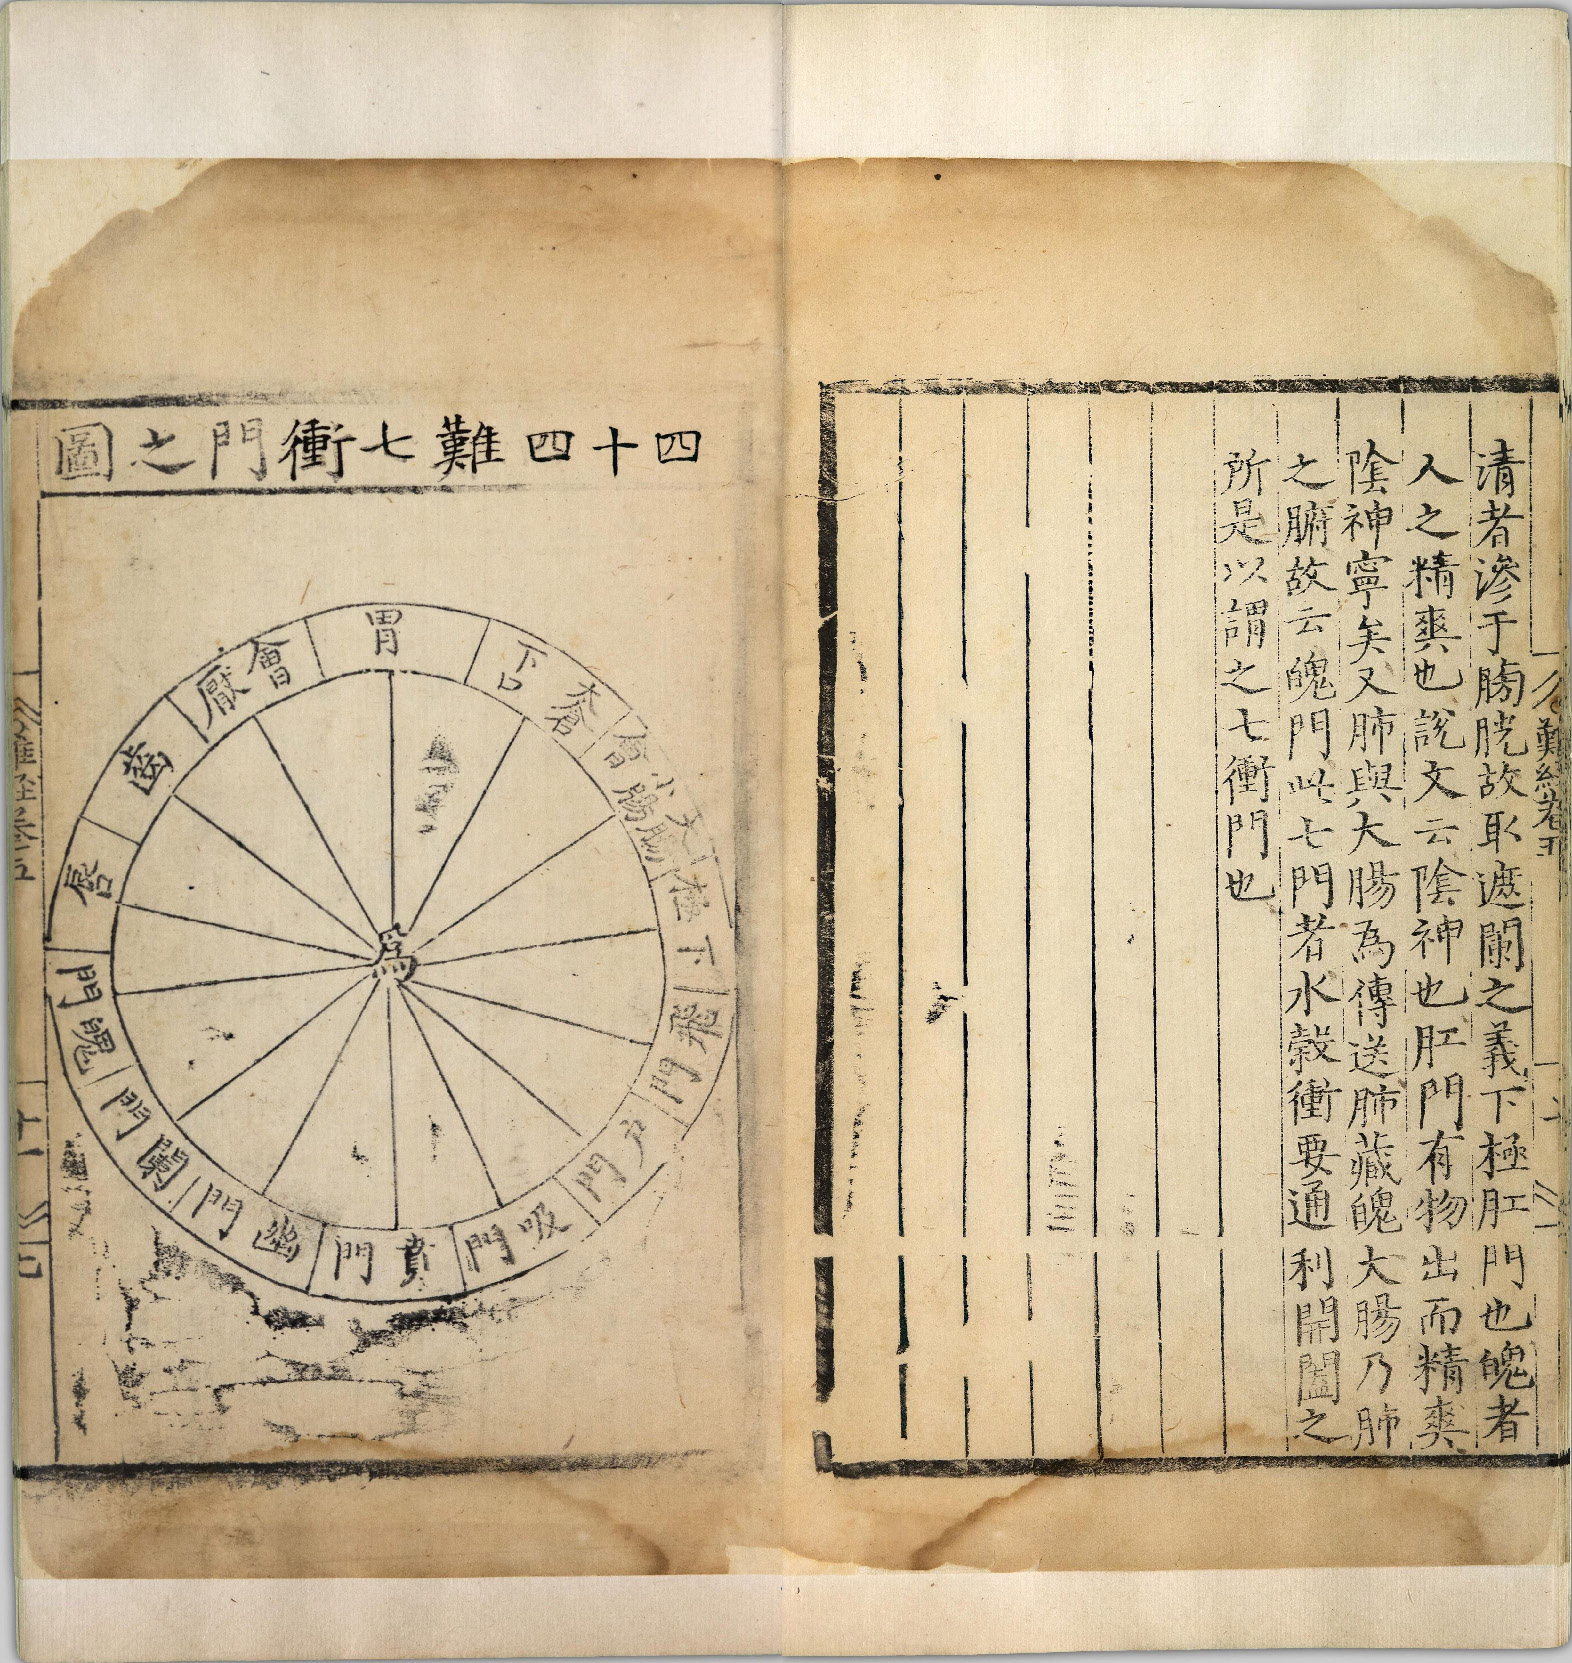 清者滲于膀胱故取遮闌之義下極肛門也魄者
人之精爽也說文云陰神也肛門有物出而精爽
陰神寧矣又肺與大腸為傳送肺藏魄大腸乃肺
之腑故云魄門此七門者水穀衝要通利開闔之
所是以謂之七衝門也
難經卷五
四十四難七衝門之圖
胃
下口
太倉
會
小腸
大腸
下極
飛門
户門
吸門
賁門
幽門
闌門
魄門
唇
齒
會厭
為